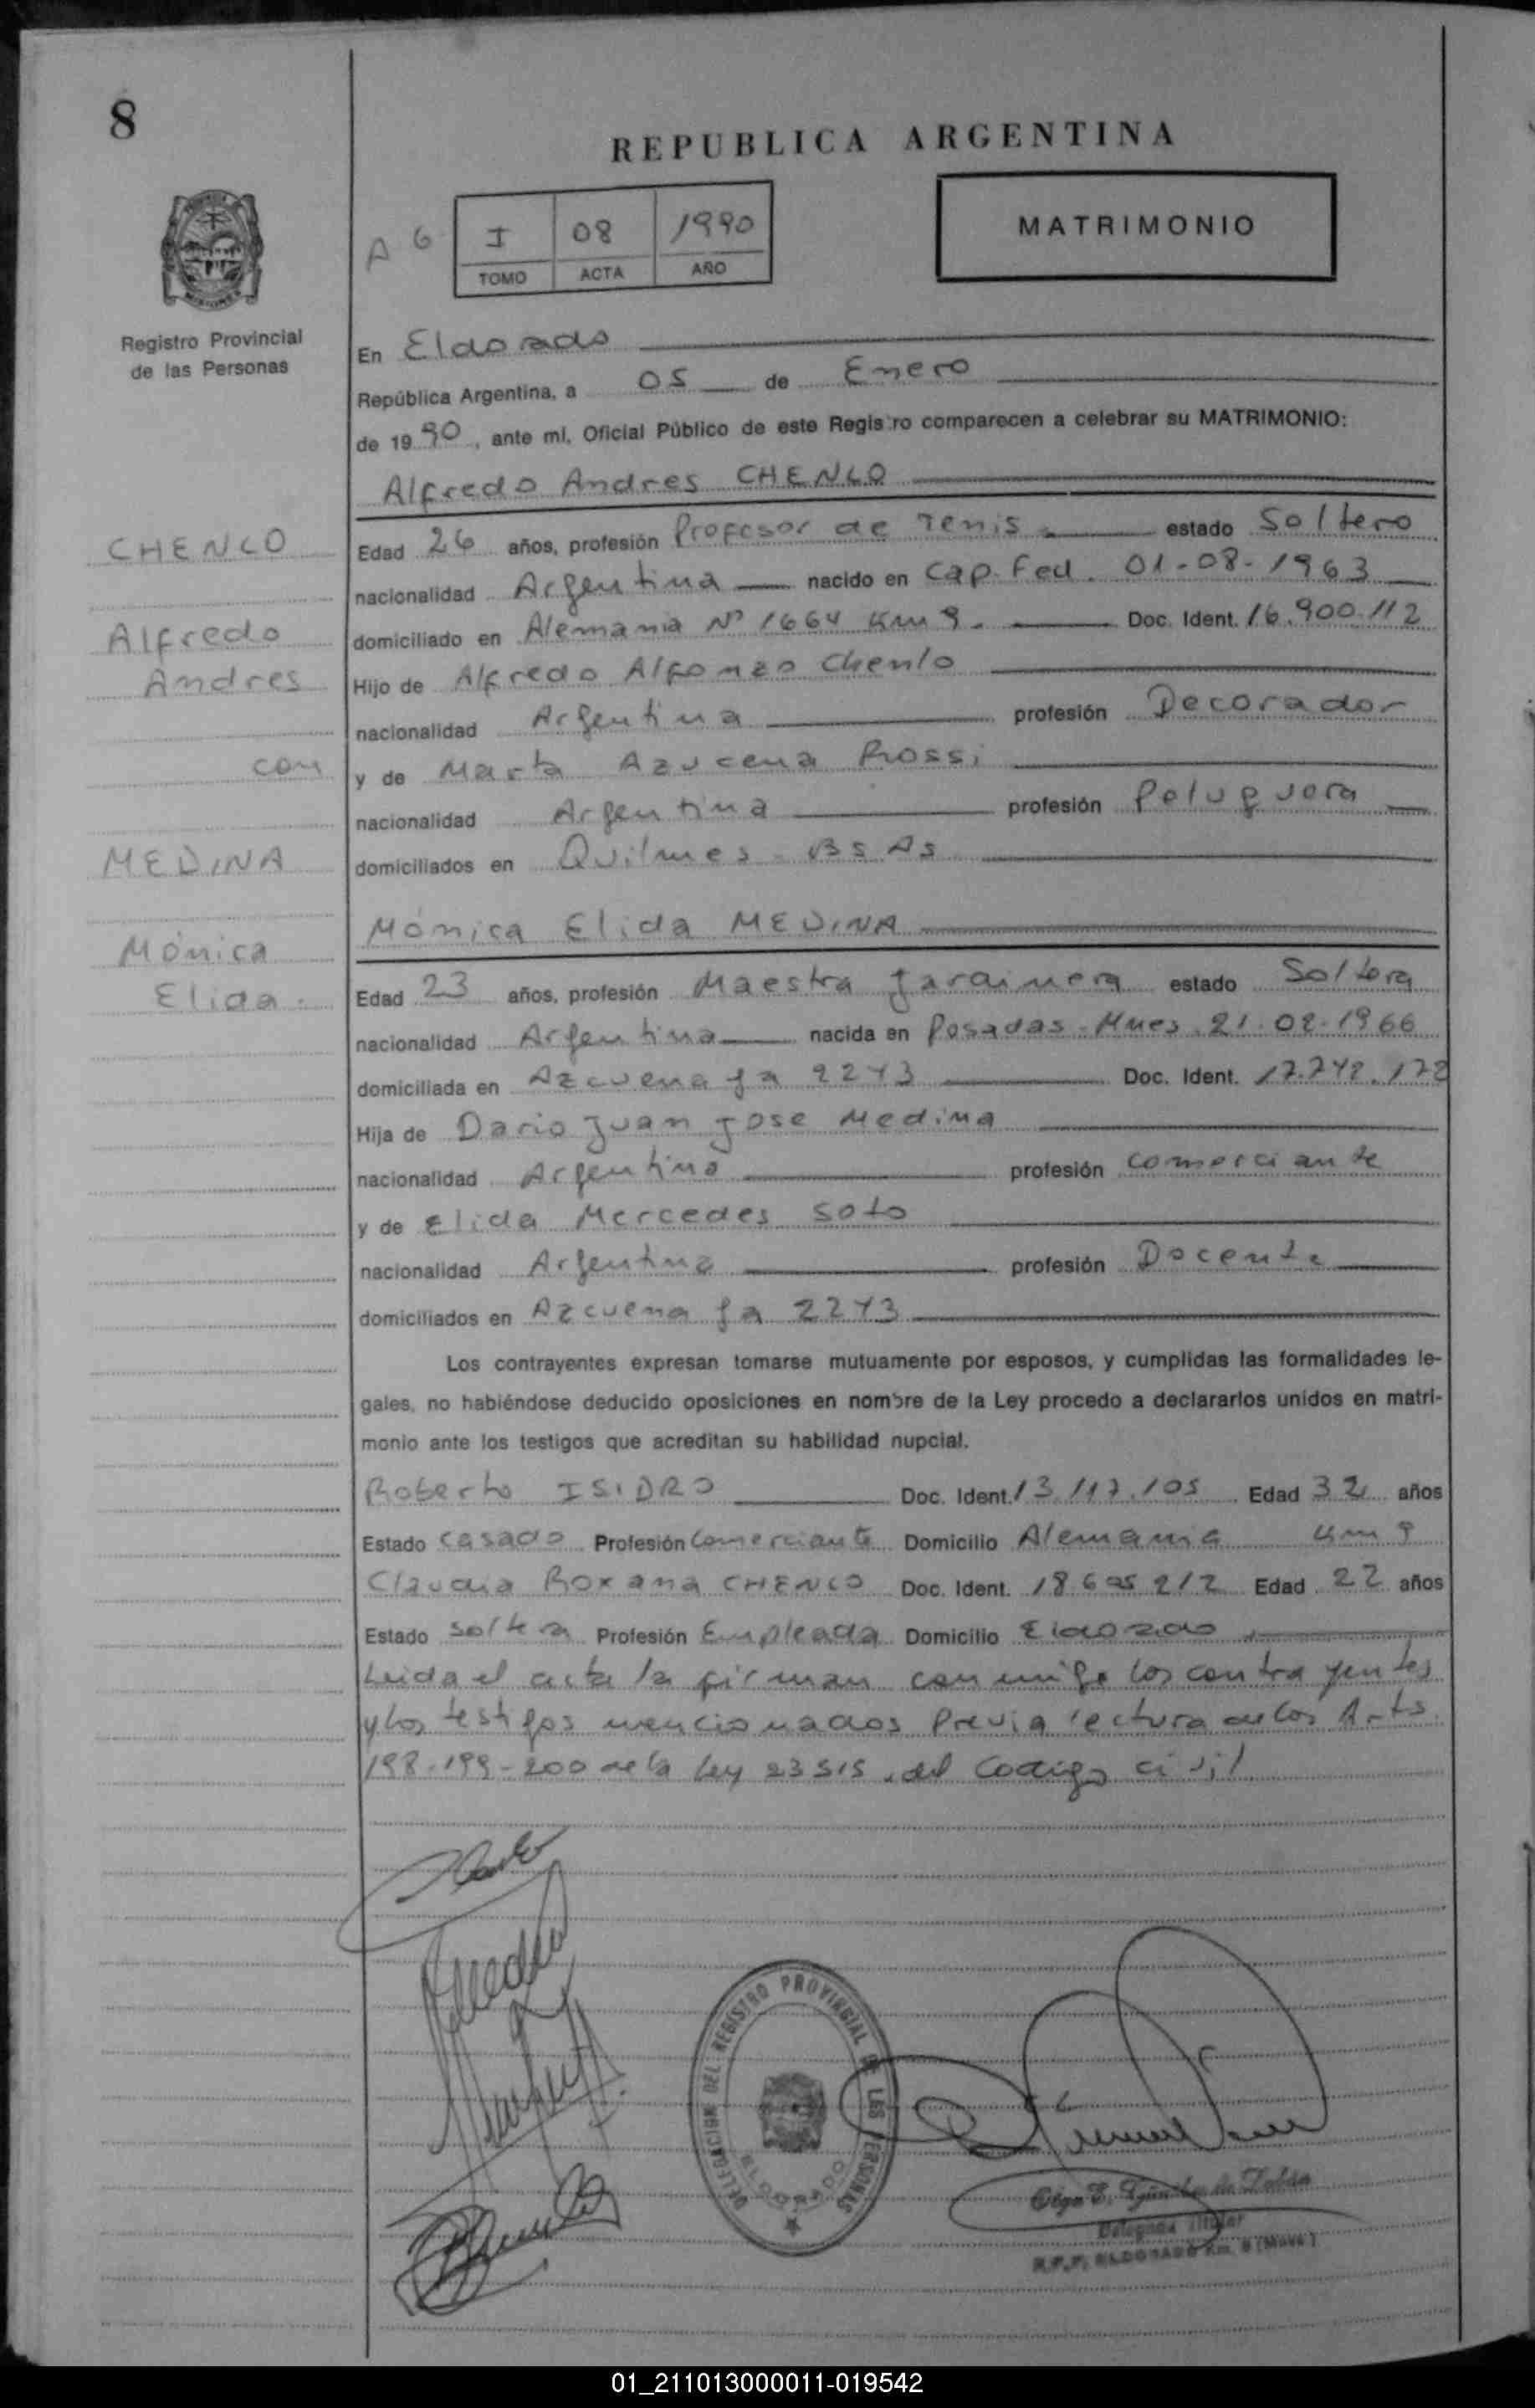 8
REPUBLICA ARGENTINA
A 6
I 08 1990
TOMO ACTA AÑO
MATRIMONIO
Registro Provincial
de las Personas
En Eldorado
República Argentina, a 05 de Enero
de 1990, ante mi, Oficial Público de este Registro comparecen a celebrar su MATRIMONIO:
Alfredo Andres CHENLO
CHENLO
Alfredo
Andres
con
MEDINA
Mónica
Elida.
Edad 26 años, profesión Profesor de Tenis. estado Soltero
nacionalidad Argentina nacido en Cap. Fed. 01-08-1963
domiciliado en Alemania Nº 1664 Km 9. Doc. Ident. 16.900.112
Hijo de Alfredo Alfonzo Chenlo
nacionalidad Argentina profesión Decorador
y de Marta Azucena Rossi
nacionalidad Argentina profesión Peluquera
domiciliados en Quilmes - Bs As
Mónica Elida MEDINA
Edad 23 años, profesión Maestra Jardinera estado Soltera
nacionalidad Argentina nacida en Posadas - Mnes. 21-02-1966
domiciliada en Azcuenaga Doc. Ident.
Hija de Dario Juan Jose Medina
nacionalidad Argentina profesión comerciante
y de Elida Mercedes Soto
nacionalidad Argentina profesión Docente
domiciliados en Azcuenaga
Los contrayentes expresan tomarse mutuamente por esposos, y cumplidas las formalidades le-
gales, no habiéndose deducido oposiciones en nombre de la Ley procedo a declararlos unidos en matri-
monio ante los testigos que acreditan su habilidad nupcial.
Roberto ISIDRO Doc. Ident. 13.117.105 Edad 32 años
Estado casado Profesión Comerciante Domicilio Alemania Km 9
Claudia Roxana CHENLO Doc. Ident. Edad 22 años
Estado soltera Profesión Empleada Domicilio Eldorado
Leida el acta la firman conmigo los contrayentes
y los testigos mencionados Previa lectura de los Arts.
198-199-200 de la Ley 23515, del Codigo civil
DELEGACION DEL REGISTRO PROVINCIAL DE LAS PERSONAS
ELDORADO
Olga E. de
Delegada Titular
R.P.P. ELDORADO Km. 9 (Mnes)
01_211013000011-019542